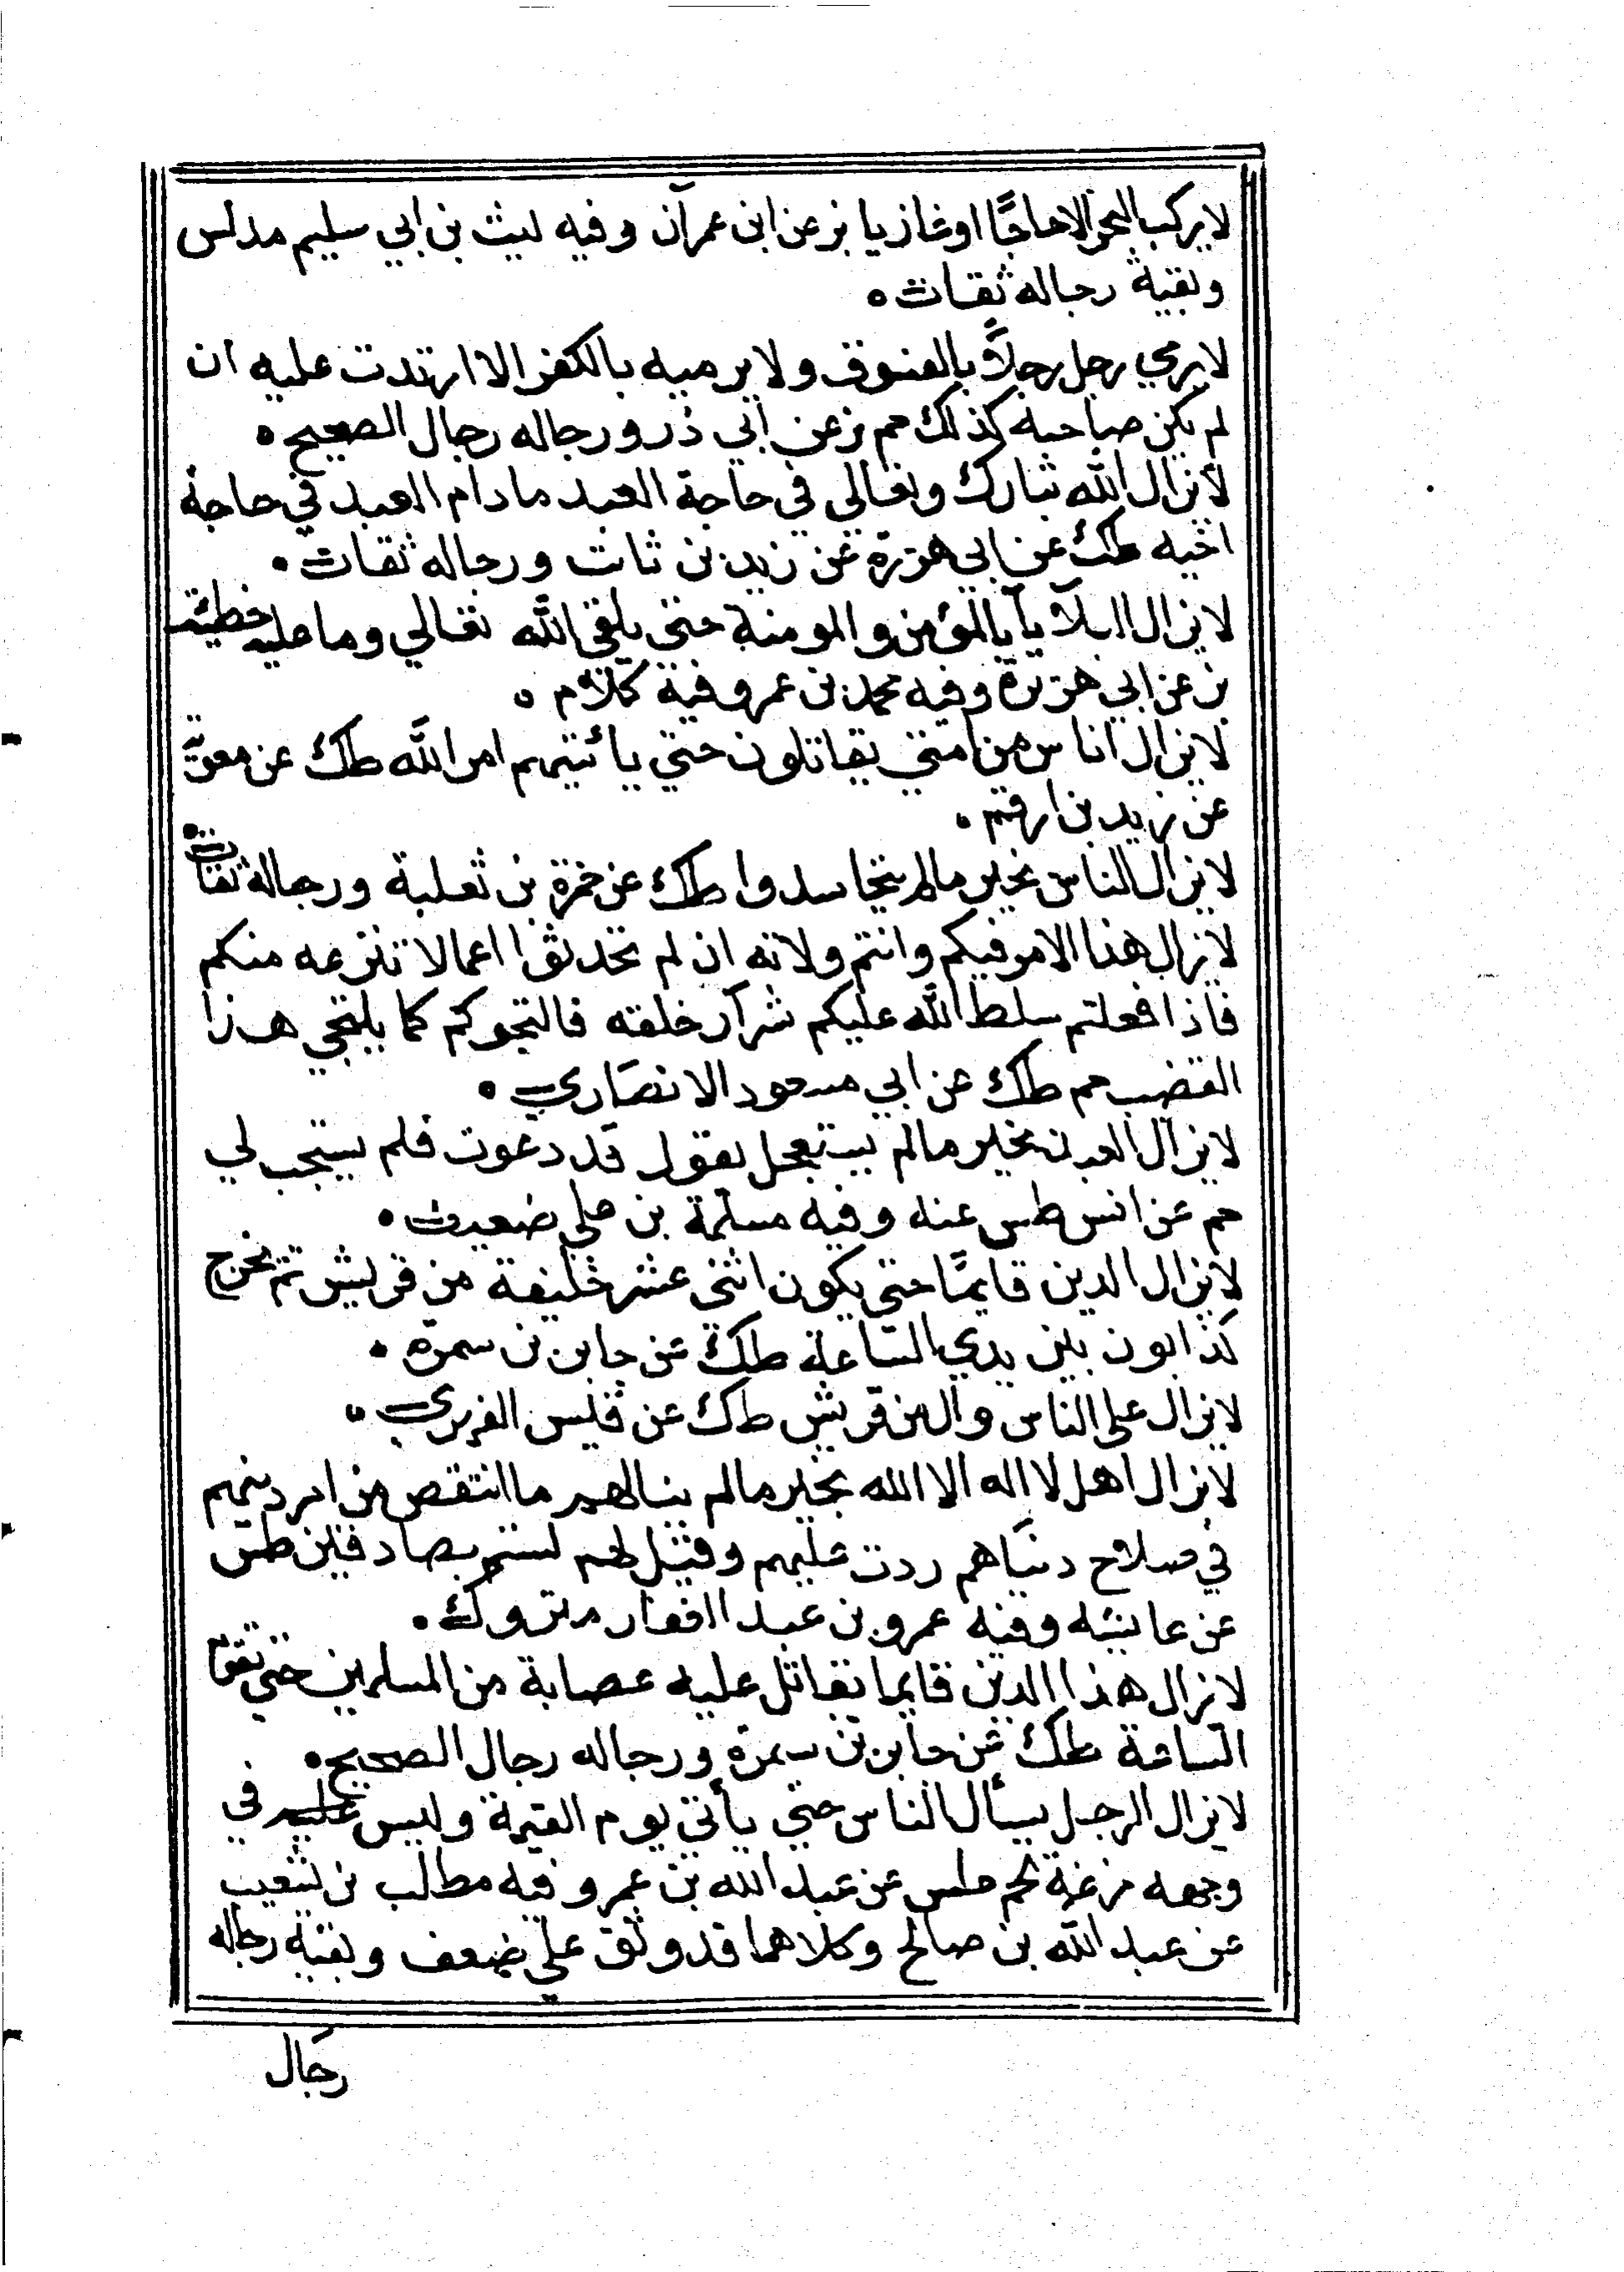 لا يركب البحر الا حاجًّا او غازيا بز عن ابن عمر وفيه ليث بن ابي سليم مدلس
وبقية رجاله ثقات ٥
لا يرمي رجل رجلاً بالفسوق ولا يرميه بالكفر الا ارتدت عليه ان
لم يكن صاحبه كذلك حم بز عن ابي ذر ورجاله رجال الصحيح ٥
لا يزال الله تبارك وتعالي في حاجة العبد ما دام العبد في حاجة
اخيه طك عن ابي هريرة عن زيد بن ثابت ورجاله ثقات ٠
لا يزال البلآيا بالمؤمن والمومنة حتي يلقي الله تعالي وما عليه خطيئة
بز عن ابي هريرة وفيه محمد بن عمر وفيه كلام ٥
لا يزال اناس من امتي يقاتلون حتي يأتيهم امر الله طك عن معوية
عن زيد بن ارقم ٠
لا يزال الناس بخير ما لم يتحاسدوا طك عن ضمرة بن ثعلبة ورجاله ثقات ٠
لا يزال هذا الامر فيكم وانتم ولاته ان لم تحدثوا اعمالا تنزعه منكم
فاذا فعلتم سلط الله عليكم شرآر خلقه فالتحوكم كما يلتحي هذا
القضيب حم طك عن ابي مسعود الانصاري ٠
لا يزال العبد بخير ما لم يستعجل يقول قد دعوت فلم يستجب لي
حم عن انس طس عنه وفيه مسلمة بن علي ضعيف ٠
لا يزال الدين قايمًا حتي يكون اثني عشر خليفة من قريش ثم يخرج
كذابون بين يدي الساعة طك عن جابر بن سمرة ٠
لا يزال علي الناس وال من قريش طك عن قيس الفهري ٥
لا يزال اهل لا اله الا الله بخير ما لم يبالهم ما انتقص من امر دينهم
في صلاح دنياهم ردت عليهم وقيل لهم لستم بصادقين طس
عن عايشه وفيه عمرو بن عبد الغفار متروك ٠
لا يزال هذا الدين قايما يقاتل عليه عصابة من المسلمين حتي تقوم
الساعة طك عن جابر بن سمرة ورجاله رجال الصحيح ٠
لا يزال الرجل يسأل الناس حتي يأتي يوم القيمة وليس عليه في
وجهه مزعة لحم طس عن عبد الله بن عمر وفيه مطلب بن شعيب
عن عبد الله بن صالح وكلاهما قد وثق علي ضعف وبقية رجاله
رجال